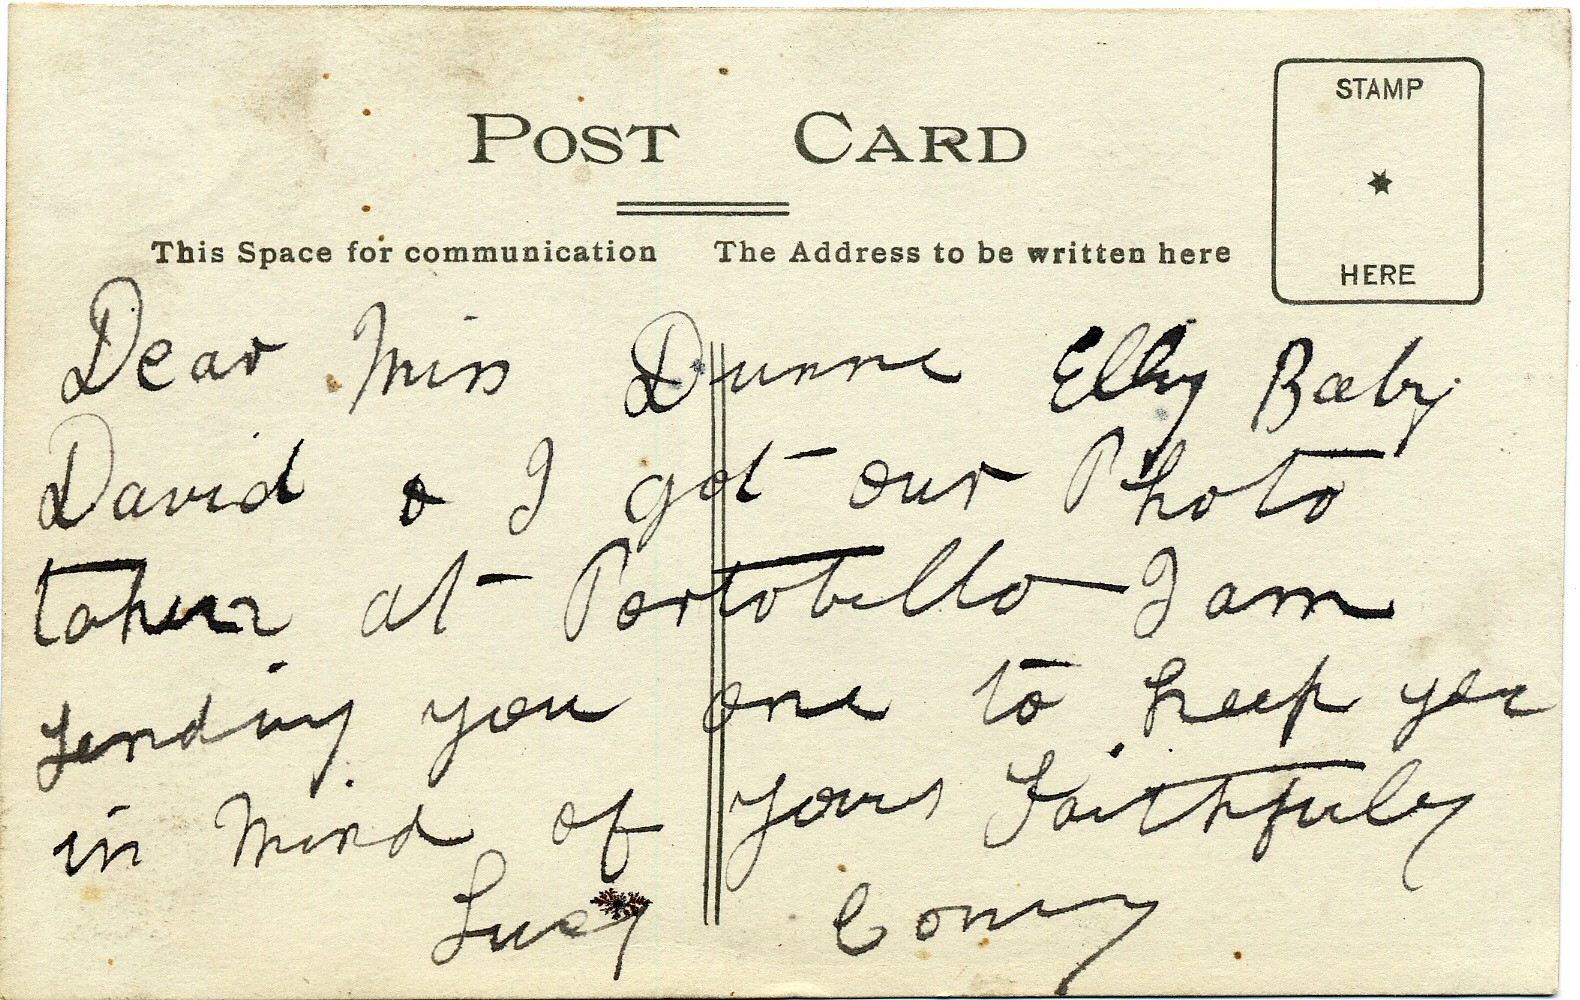 POST CARD
STAMP
HERE
This Space for communication The Address to be written here
Dear Miss Dunne Elly Baby
David & I got our Photo
taken at Portobello I am
sending you one to keep you
in Mind of yours faithfuly
Lucy